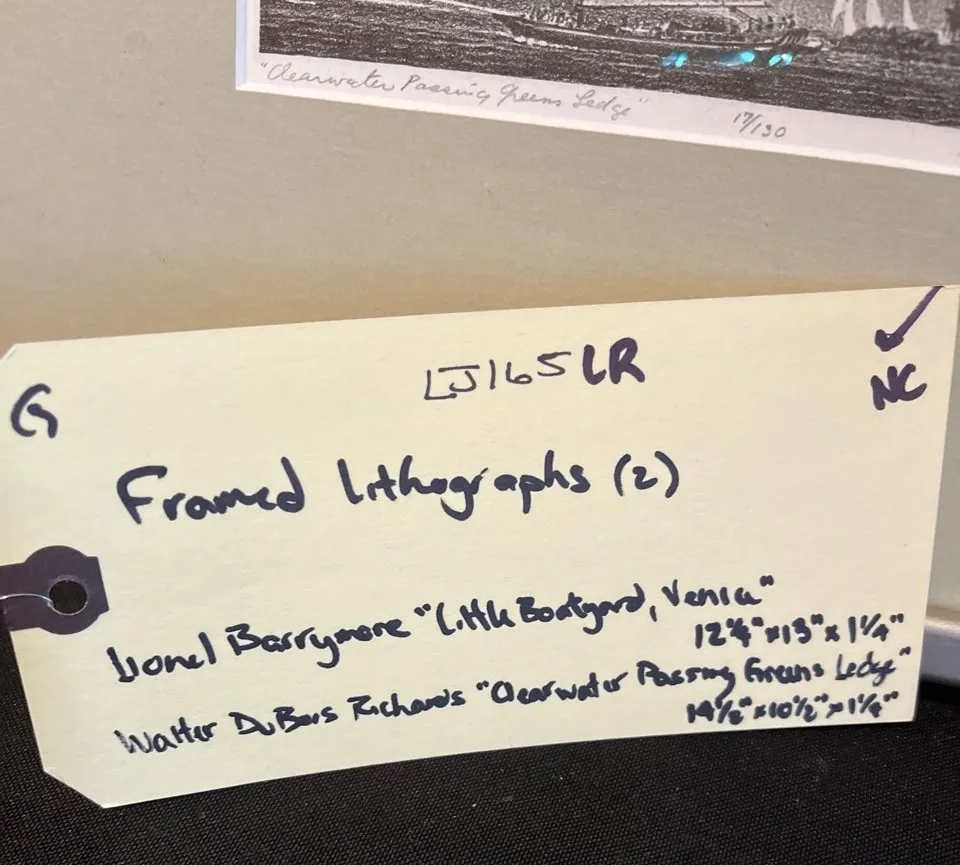 "Clearwater Passing Greens Ledge"
17/130
LJ165 LR
NC
G
Framed Lithographs (2)
Lionel Barrymore "Little Boatyard, Venice"
12¼" x 13" x 1¼"
Walter DuBois Richards "Clearwater Passing Greens Ledge"
14½" x 10½" x 1¼"